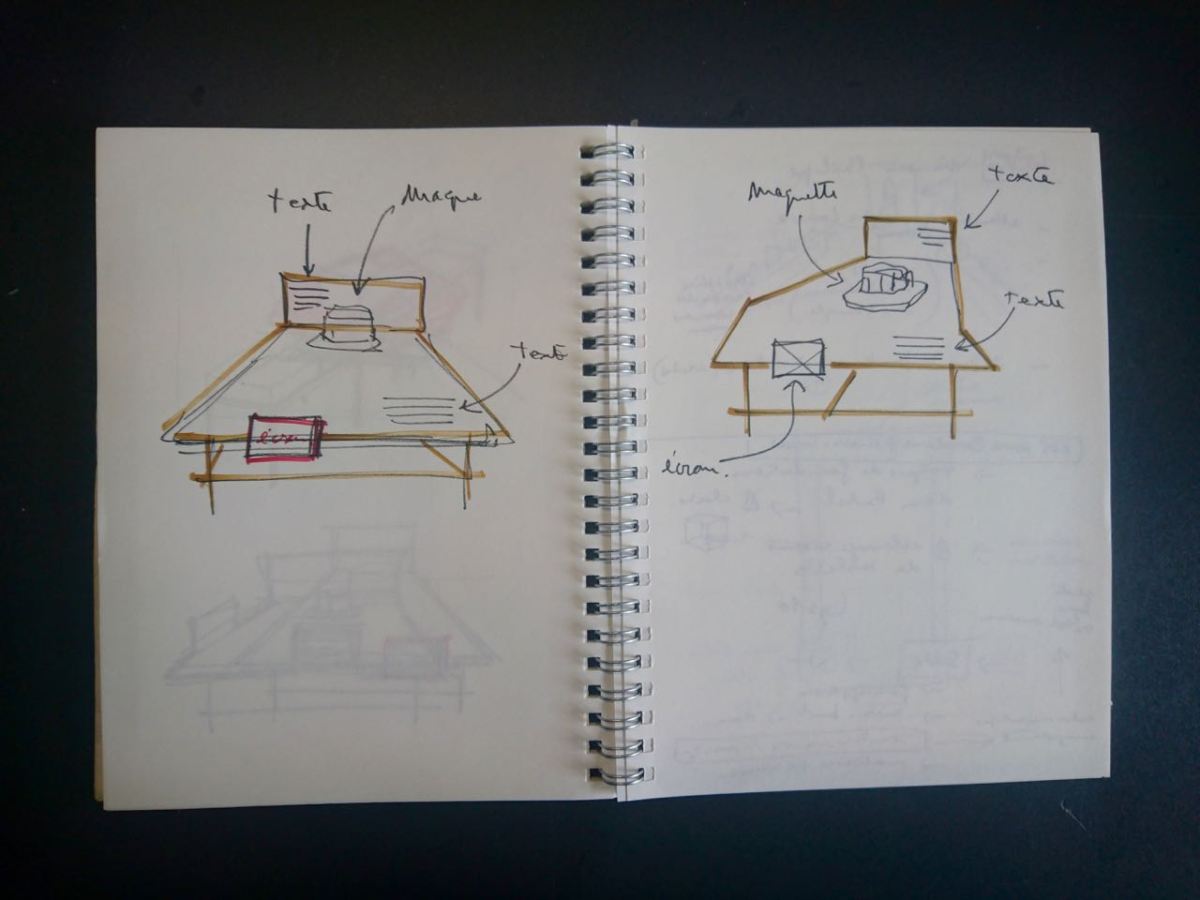 texte
Maque
texte
écran
Maquette
texte
texte
écran.